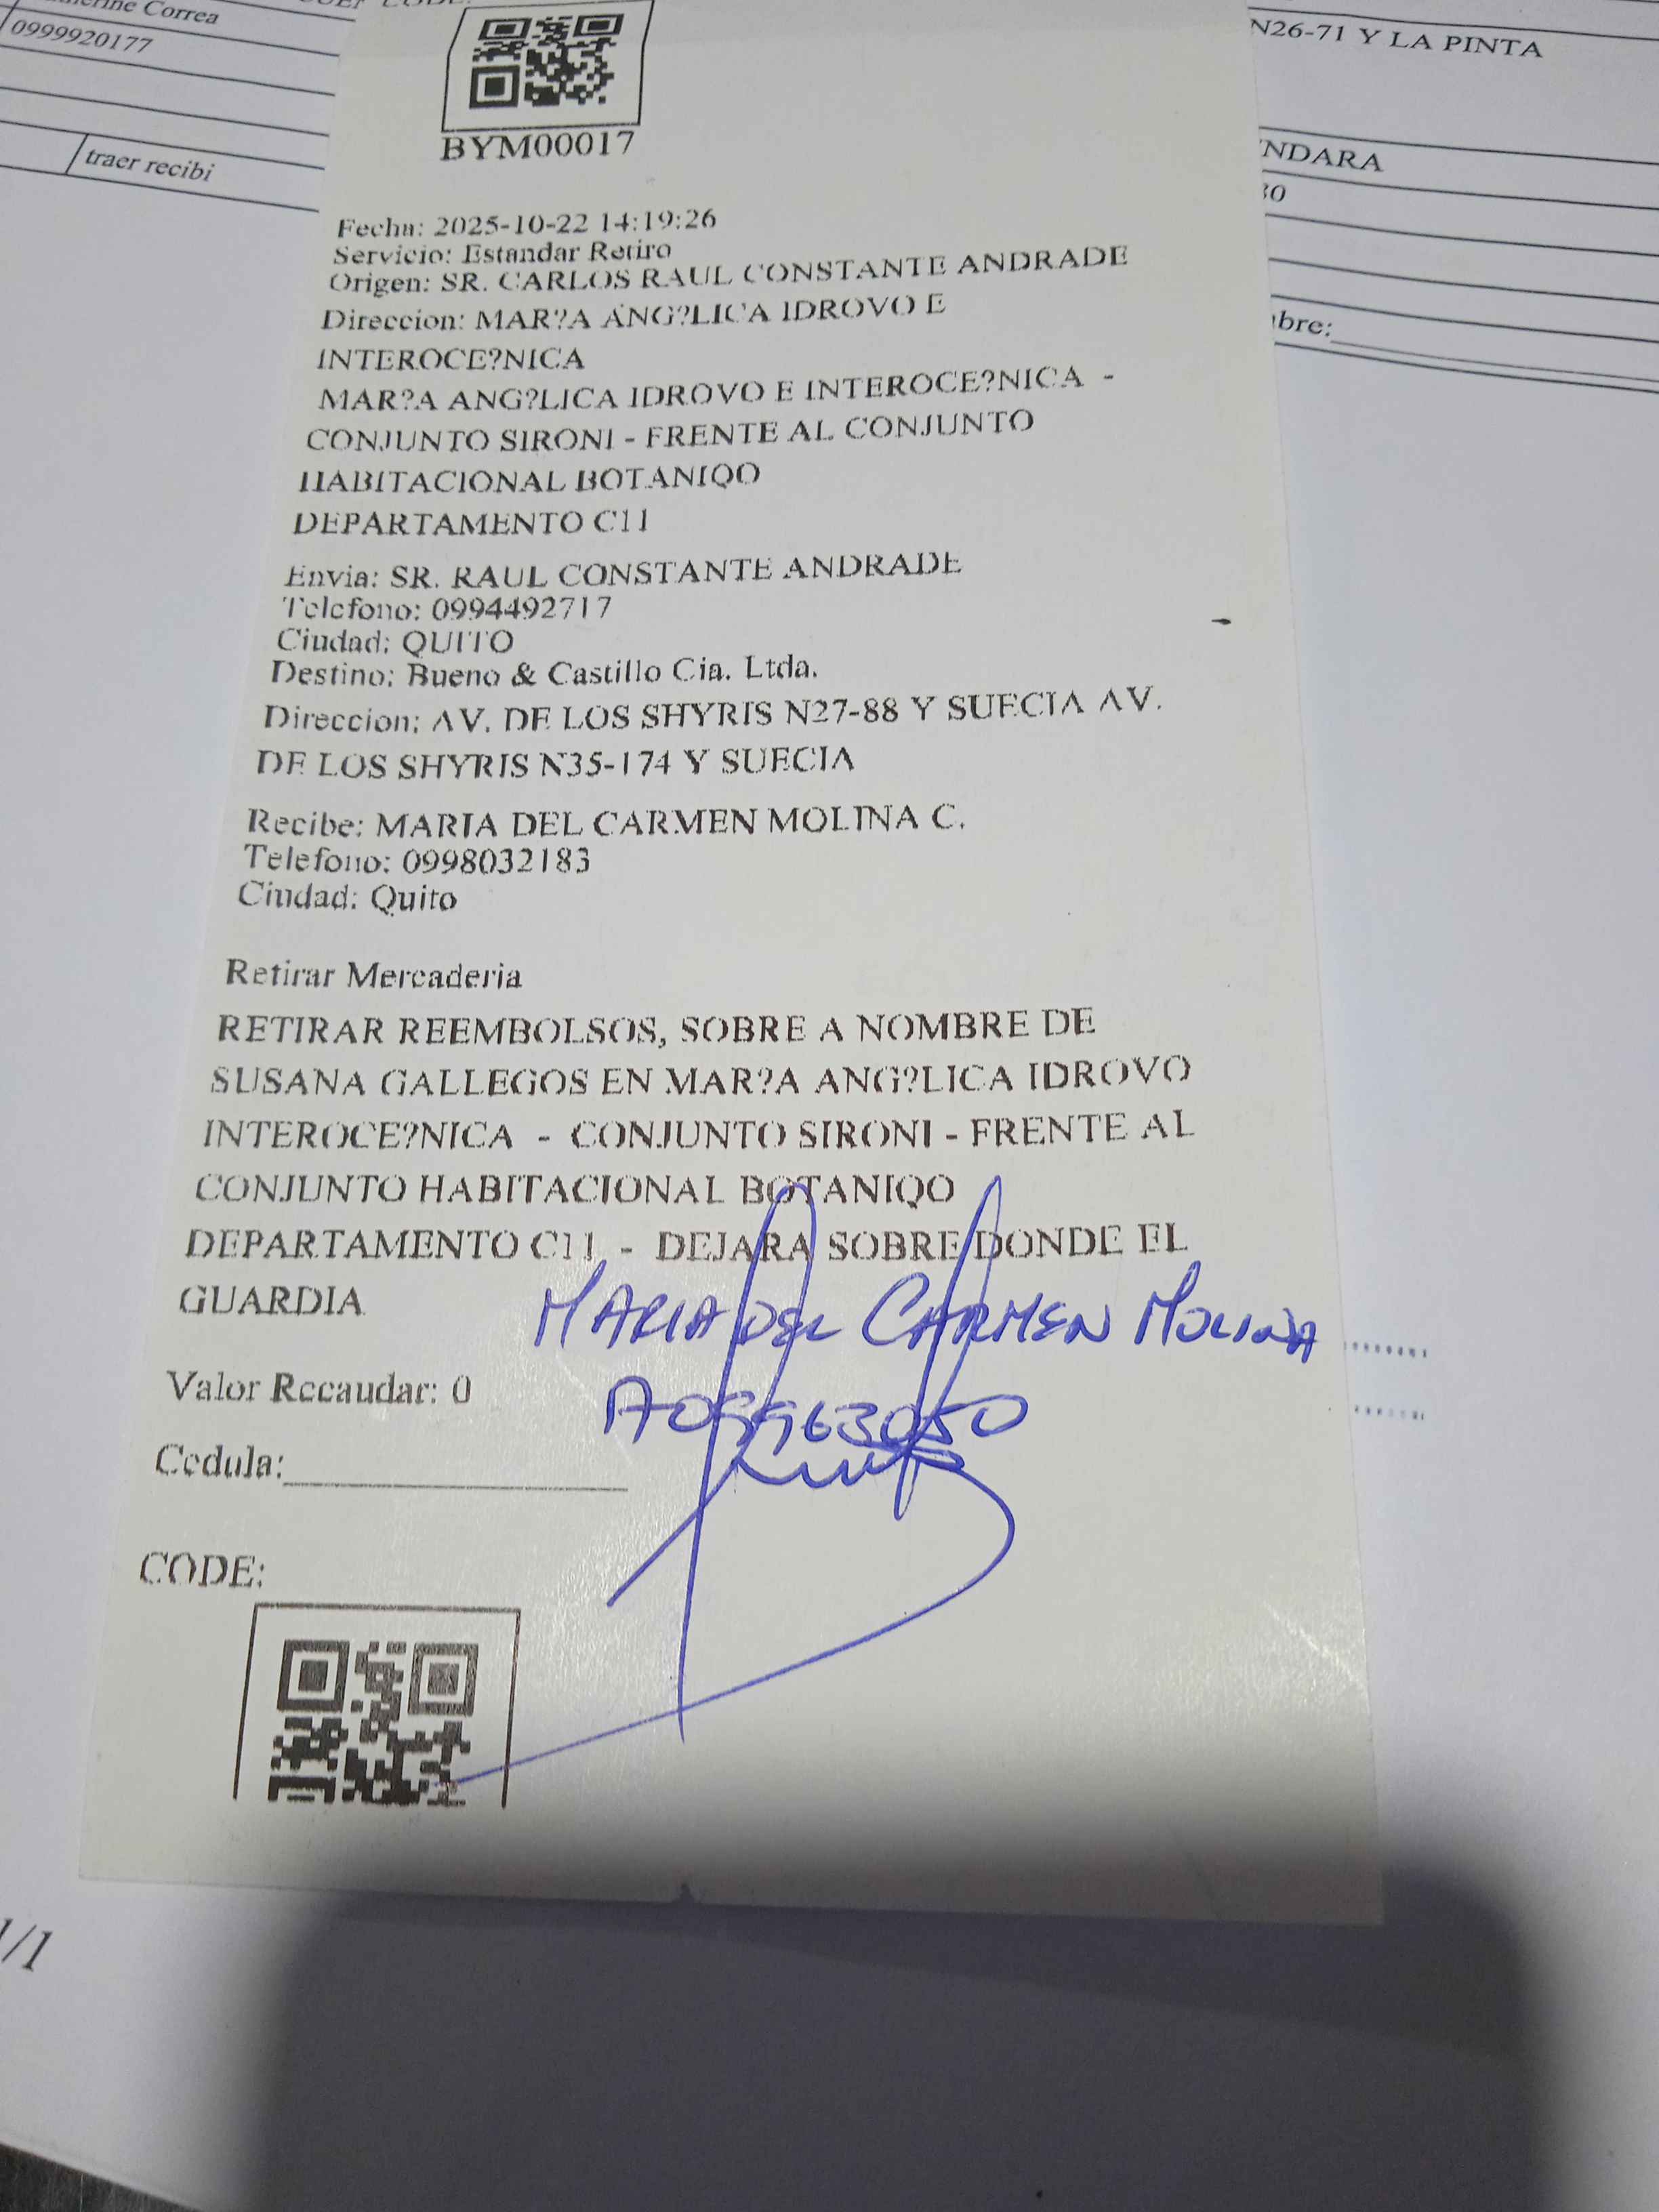 Correa
0999920177
traer recibi
N26-71 Y LA PINTA
NDARA
30
bre:
BYM00017
Fecha: 2025-10-22 14:19:26
Servicio: Estandar Retiro
Origen: SR. CARLOS RAUL CONSTANTE ANDRADE
Direccion: MAR?A ANG?LICA IDROVO E
INTEROCE?NICA
MAR?A ANG?LICA IDROVO E INTEROCE?NICA -
CONJUNTO SIRONI - FRENTE AL CONJUNTO
HABITACIONAL BOTANIQO
DEPARTAMENTO C11
Envia: SR. RAUL CONSTANTE ANDRADE
Telefono: 0994492717
Ciudad: QUITO
Destino: Bueno & Castillo Cia. Ltda.
Direccion: AV. DE LOS SHYRIS N27-88 Y SUECIA AV.
DE LOS SHYRIS N35-174 Y SUECIA
Recibe: MARIA DEL CARMEN MOLINA C.
Telefono: 0998032183
Ciudad: Quito
Retirar Mercaderia
RETIRAR REEMBOLSOS, SOBRE A NOMBRE DE
SUSANA GALLEGOS EN MAR?A ANG?LICA IDROVO
INTEROCE?NICA - CONJUNTO SIRONI - FRENTE AL
CONJUNTO HABITACIONAL BOTANIQO
DEPARTAMENTO C11 - DEJARA SOBRE DONDE EL
GUARDIA
MARIA DEL CARMEN MOLINA
Valor Recaudar: 0
Cedula:
CODE:
1/1